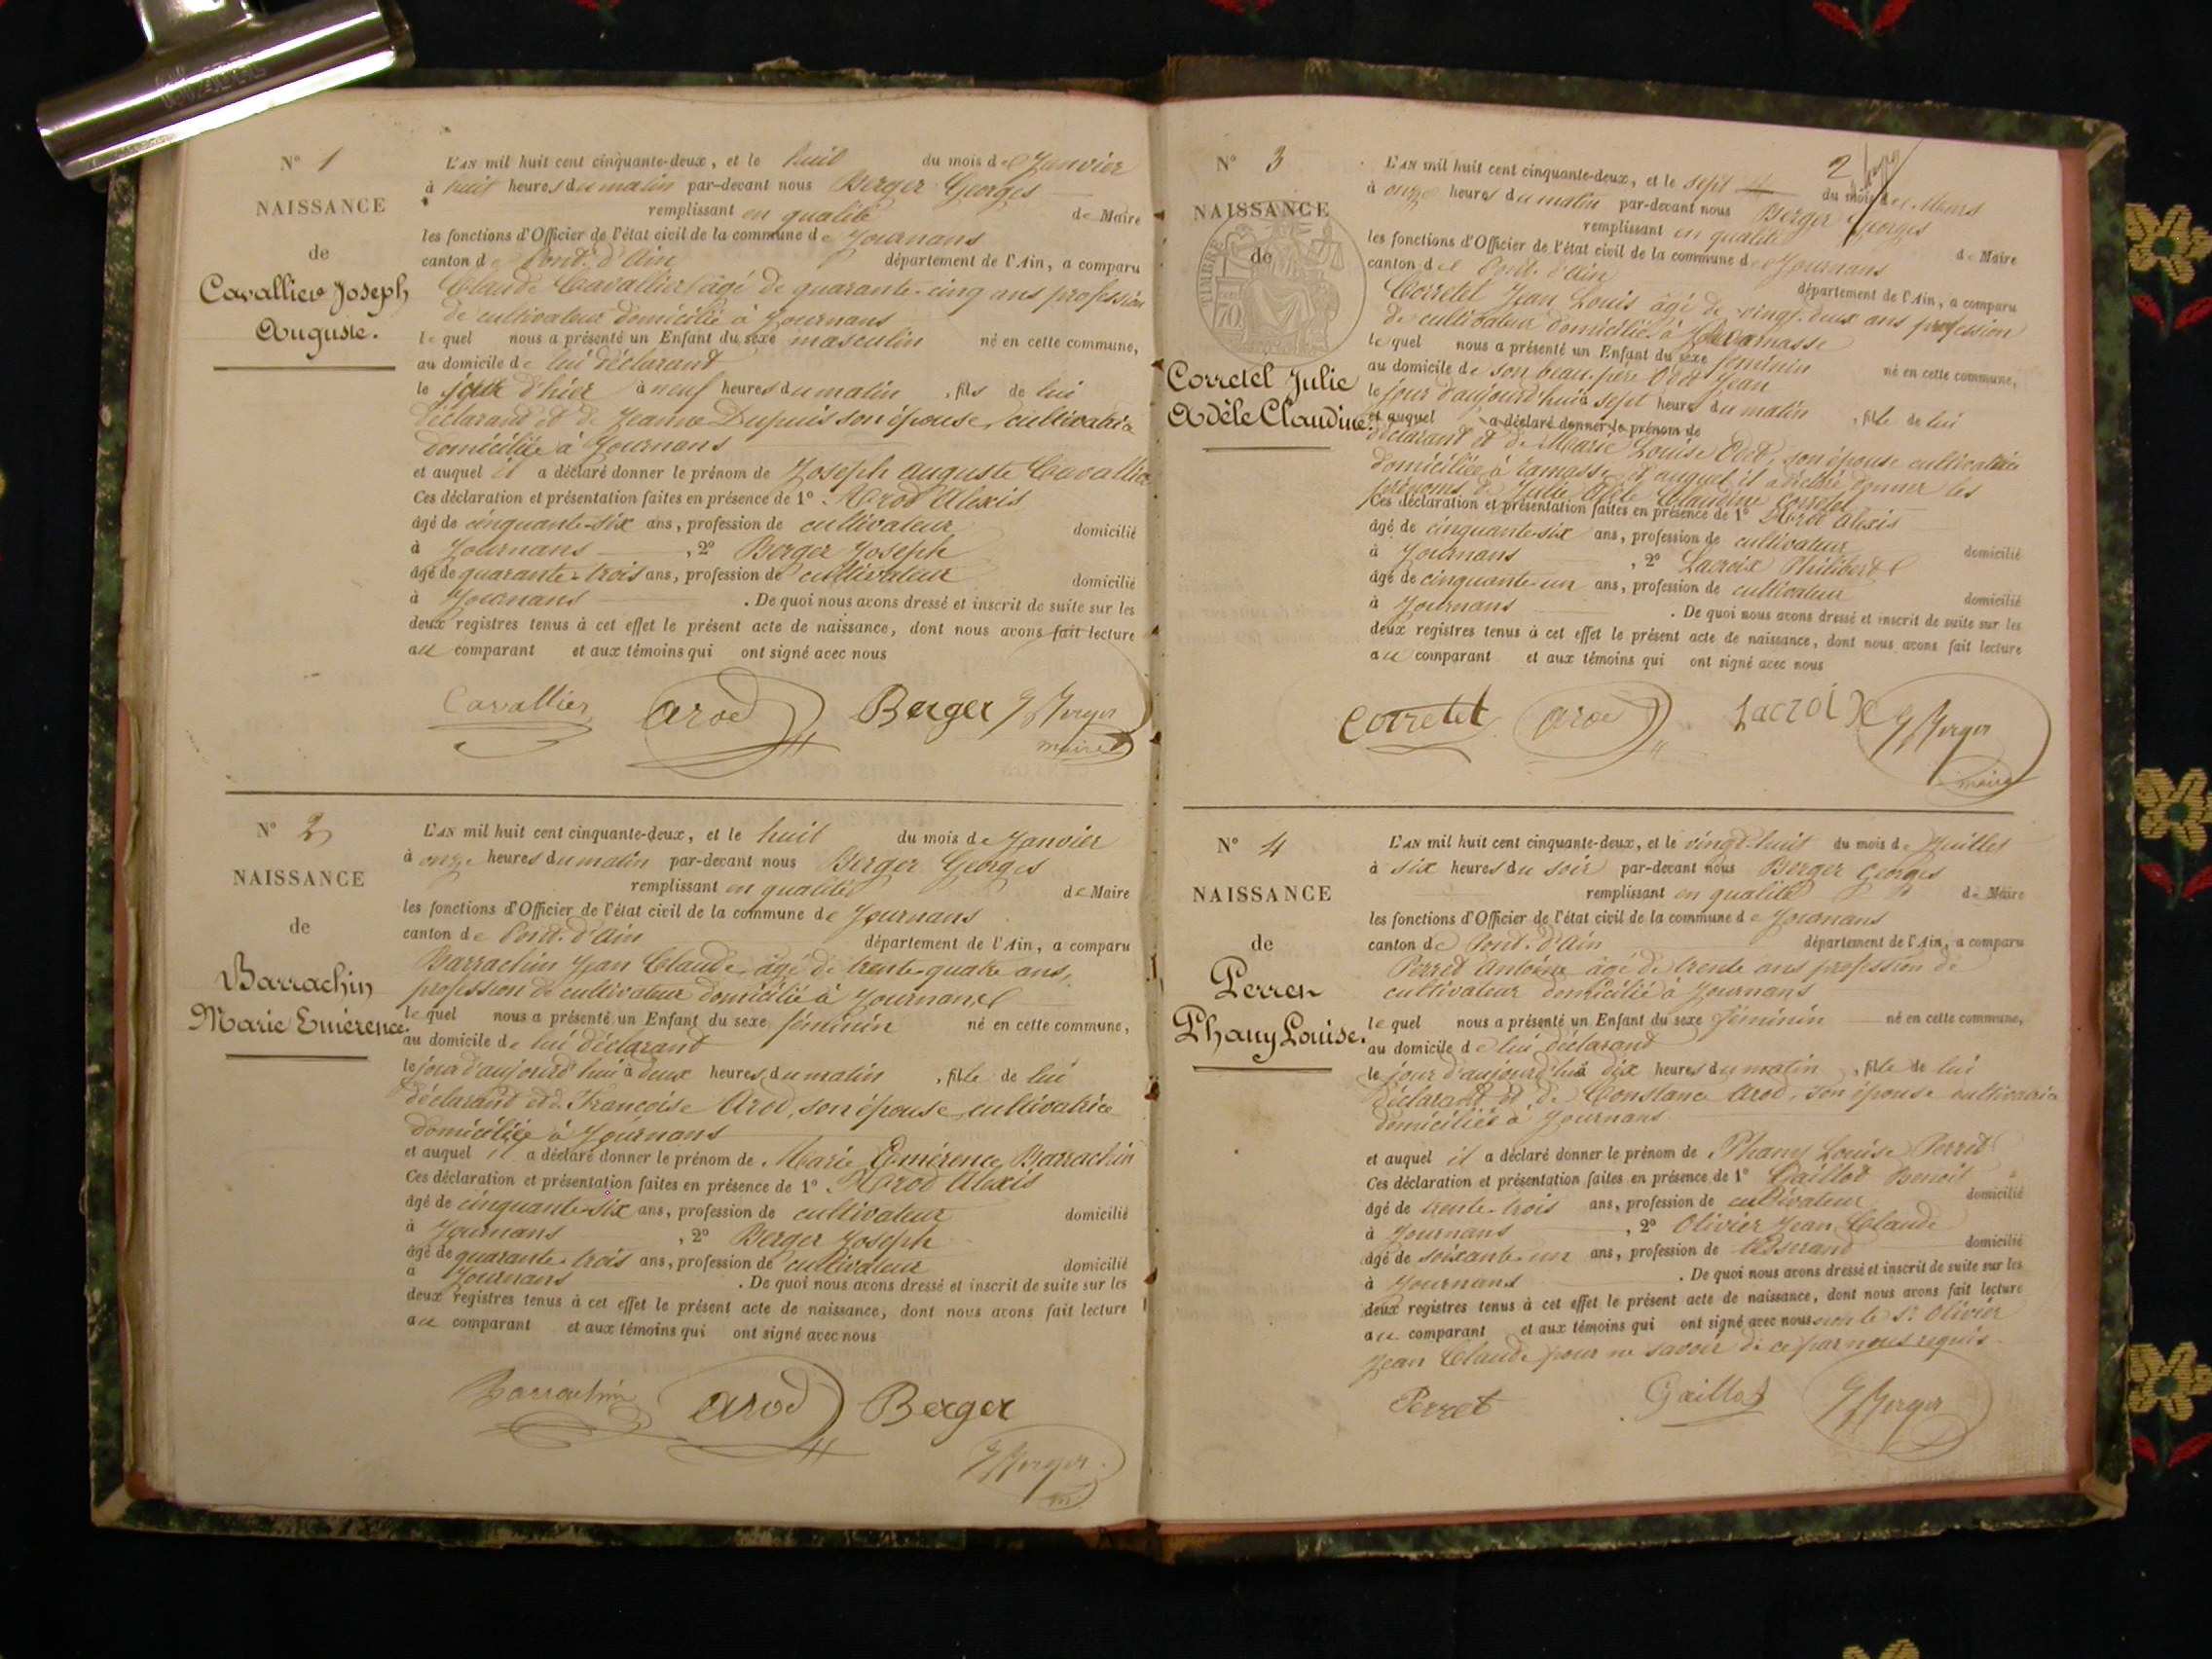 N° 1
NAISSANCE
de
Cavallier Joseph
Auguste.
L'AN mil huit cent cinquante-deux, et le huit du mois de Janvier
à huit heures du matin par-devant nous Berger Georges
remplissant en qualité de Maire
les fonctions d'Officier de l'état civil de la commune de Journans
canton de Pont-d'Ain département de l'Ain, a comparu
Claude Cavallier âgé de quarante-cinq ans profession
de cultivateur domicilié à Journans
lequel nous a présenté un Enfant du sexe masculin né en cette commune,
au domicile de lui déclarant
le jour d'hier à neuf heures du matin, fils de lui
déclarant et de Jeanne Dupuis son épouse, cultivatrice
domiciliée à Journans
et auquel il a déclaré donner le prénom de Joseph Auguste Cavallier
Ces déclaration et présentation faites en présence de 1° Arod Alexis
âgé de cinquante-six ans, profession de cultivateur domicilié
à Journans, 2° Berger Joseph
âgé de quarante-trois ans, profession de cultivateur domicilié
à Journans. De quoi nous avons dressé et inscrit de suite sur les
deux registres tenus à cet effet le présent acte de naissance, dont nous avons fait lecture
au comparant et aux témoins qui ont signé avec nous
Cavallier Arod Berger G Berger
maire
N° 2
NAISSANCE
de
Barrachin
Marie Emérence.
L'AN mil huit cent cinquante-deux, et le huit du mois de Janvier
à onze heures du matin par-devant nous Berger Georges
remplissant en qualité de Maire
les fonctions d'Officier de l'état civil de la commune de Journans
canton de Pont-d'Ain département de l'Ain, a comparu
Barrachin Jean Claude, âgé de trente-quatre ans,
profession de cultivateur domicilié à Journans
lequel nous a présenté un Enfant du sexe féminin né en cette commune,
au domicile de lui déclarant
le jour d'aujourd'hui à deux heures du matin, fille de lui
déclarant et de Françoise Arod, son épouse, cultivatrice
domiciliée à Journans
et auquel il a déclaré donner le prénom de Marie Emérence Barrachin
Ces déclaration et présentation faites en présence de 1° Arod Alexis
âgé de cinquante-six ans, profession de cultivateur domicilié
à Journans, 2° Berger Joseph
âgé de quarante-trois ans, profession de cultivateur domicilié
à Journans. De quoi nous avons dressé et inscrit de suite sur les
deux registres tenus à cet effet le présent acte de naissance, dont nous avons fait lecture
au comparant et aux témoins qui ont signé avec nous
Barrachin Arod Berger
G Berger
m
2
N° 3
NAISSANCE
de
TIMBRE
70
Corretel Julie
Adèle Claudine.
L'AN mil huit cent cinquante-deux, et le sept du mois de Mars
à onze heures du matin par-devant nous Berger Georges
remplissant en qualité de Maire
les fonctions d'Officier de l'état civil de la commune de Journans
canton de Pont-d'Ain département de l'Ain, a comparu
Corretel Jean Louis âgé de vingt-deux ans profession
de cultivateur domicilié à Ramasse
lequel nous a présenté un Enfant du sexe féminin né en cette commune,
au domicile de son beau-père Odet Jean
le jour d'aujourd'hui à sept heures du matin, fille de lui
et auquel a déclaré donner le prénom de
déclarant et de Marie Louise Odet, son épouse cultivatrice
domiciliée à Ramasse et auquel il a déclaré donner les
prénoms de Julie Adèle Claudine Corretel
Ces déclaration et présentation faites en présence de 1° Arod Alexis
âgé de cinquante-six ans, profession de cultivateur domicilié
à Journans, 2° Lacroix Philibert
âgé de cinquante-un ans, profession de cultivateur domicilié
à Journans. De quoi nous avons dressé et inscrit de suite sur les
deux registres tenus à cet effet le présent acte de naissance, dont nous avons fait lecture
au comparant et aux témoins qui ont signé avec nous
Corretel Arod Lacroix G Berger
maire
N° 4
NAISSANCE
de
Perret
Phany Louise.
L'AN mil huit cent cinquante-deux, et le vingt-huit du mois de Juillet
à six heures du soir par-devant nous Berger Georges
remplissant en qualité de Maire
les fonctions d'Officier de l'état civil de la commune de Journans
canton de Pont-d'Ain département de l'Ain, a comparu
Perret Antoine âgé de trente ans profession de
cultivateur domicilié à Journans
lequel nous a présenté un Enfant du sexe féminin né en cette commune,
au domicile de lui déclarant
le jour d'aujourd'hui à dix heures du matin, fille de lui
déclarant et de Constance Arod, son épouse cultivatrice
domiciliée à Journans
et auquel il a déclaré donner le prénom de Phany Louise Perret
Ces déclaration et présentation faites en présence de 1° Gaillot Benoit
âgé de trente-trois ans, profession de cultivateur domicilié
à Journans, 2° Olivier Jean Claude
âgé de soixante-un ans, profession de tisserand domicilié
à Journans. De quoi nous avons dressé et inscrit de suite sur les
deux registres tenus à cet effet le présent acte de naissance, dont nous avons fait lecture
au comparant et aux témoins qui ont signé avec nous non le Sr Olivier
Jean Claude pour ne savoir de ce par nous requis
Perret Gaillot G Berger